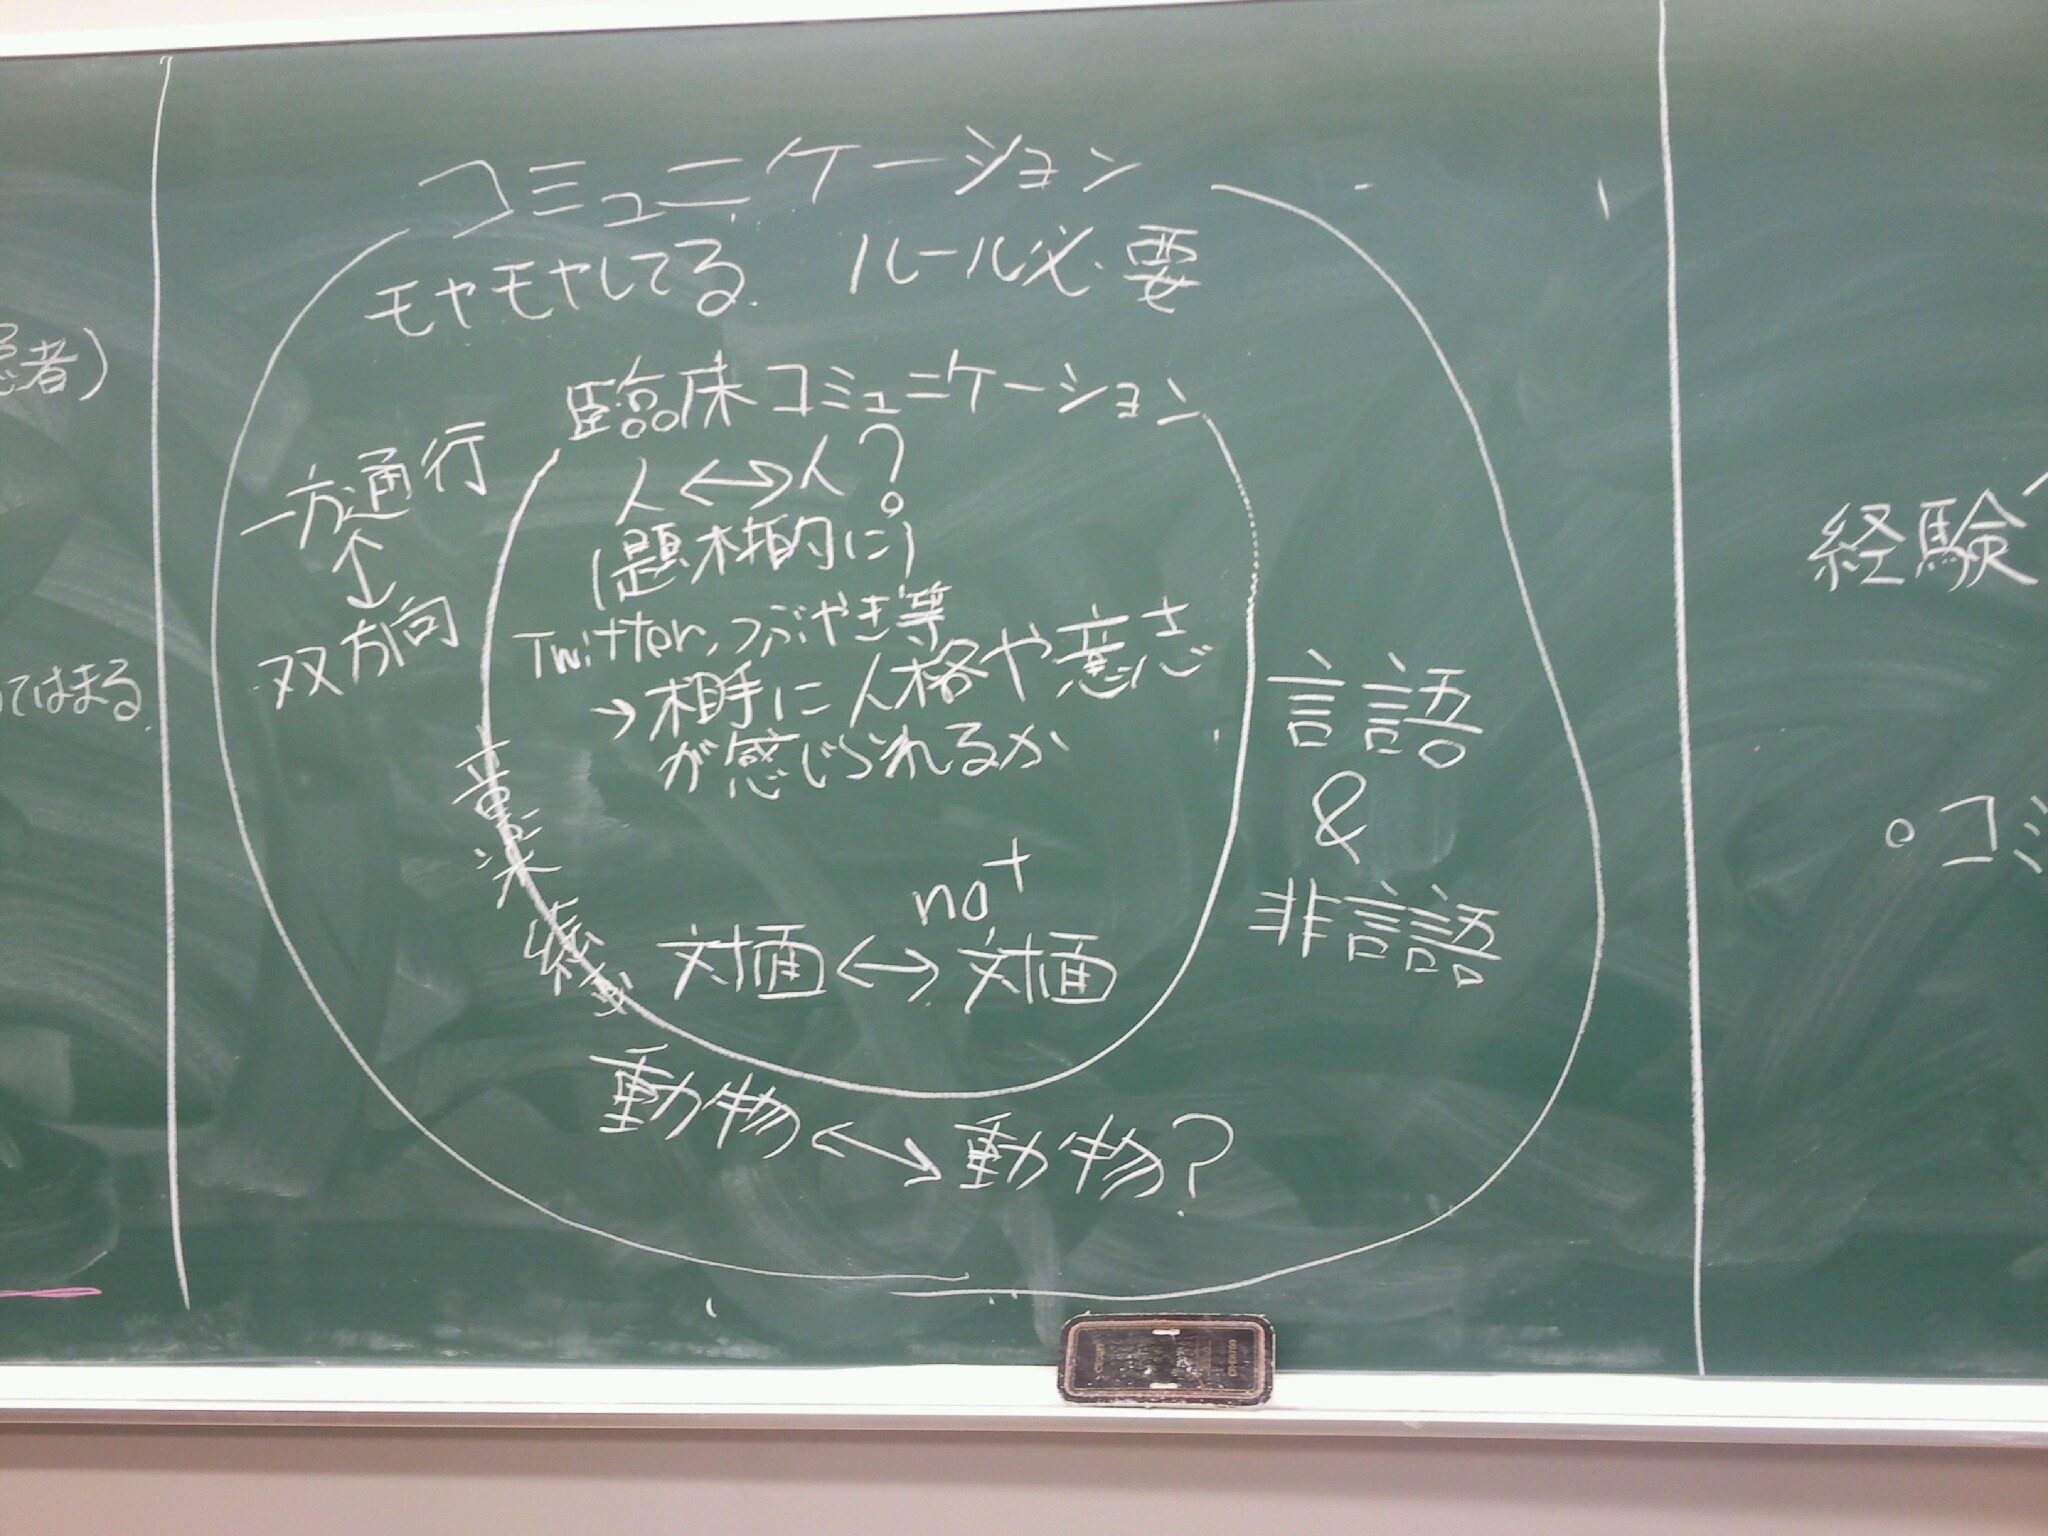 コミュニケーション
モヤモヤしてる ルール必要
臨床コミュニケーション
人↔人?
(題材的に)
Twitter,つぶやき等
→相手に人格や意志
が感じられるか
一方通行
↕
双方向
音楽
絵画
no+
対面↔対面
言語
&
非言語
動物↔動物?
者)
てはまる
経験
○コミ